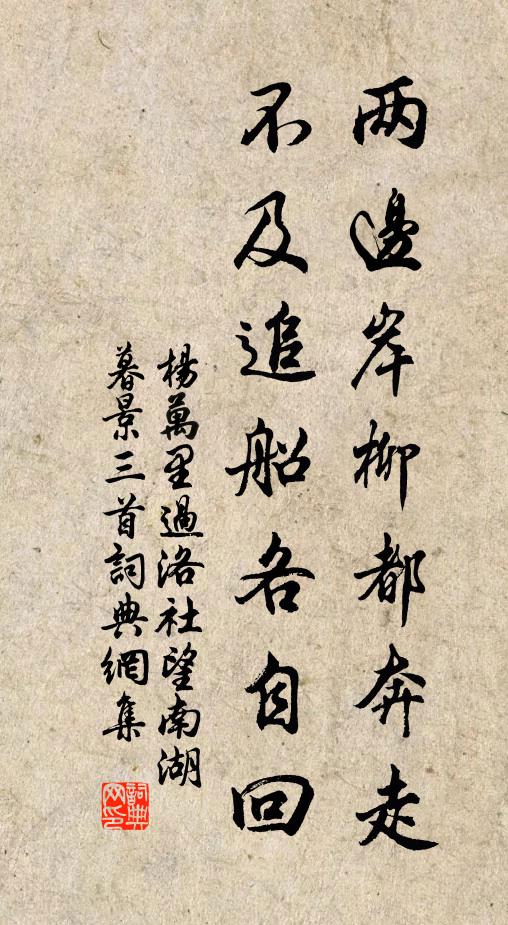 两邊岸柳都奔走
不及追船各自回
楊萬里過洛社望南湖
暮景三首詞典網集
詞典
网印